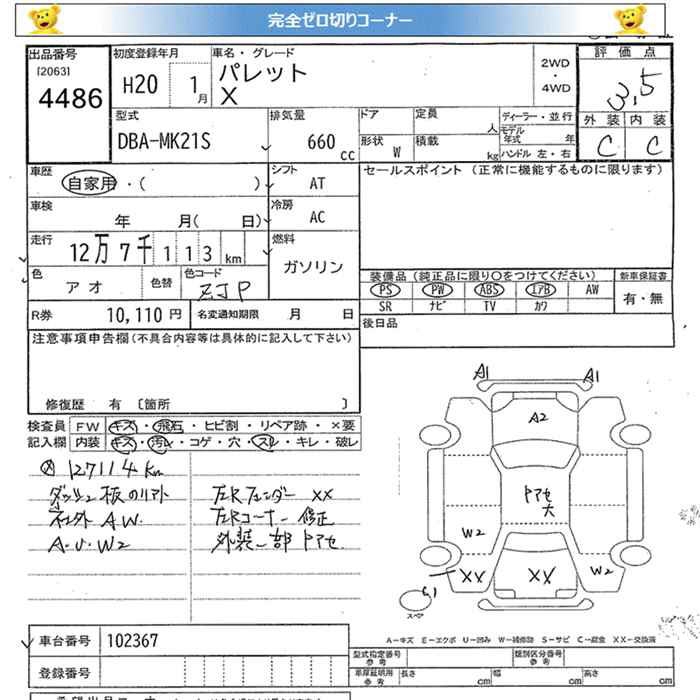 完全ゼロ切りコーナー
出品番号
[2063]
4486
初度登録年月
H20 1月
車名・グレード
パレット
X
2WD
・
4WD
評価点
3,5
外装 内装
C C
型式
DBA-MK21S
排気量
660 cc
ドア
定員
人
形状
W
積載
kg
ディーラー・並行
モデル年式 年
ハンドル 左・右
車歴
自家用・( )
シフト
AT
セールスポイント (正常に機能するものに限ります)
車検
年 月( 日)
冷房
AC
走行
12万7千113km
燃料
ガソリン
色
アオ
色替
色コード
ZJP
装備品 (純正品に限り○をつけてください)
PS PW ABS エアB AW
SR ナビ TV カワ
新車保証書
有・無
R券 10,110 円
名変通知期限 月 日
後日品
注意事項申告欄(不具合内容等は具体的に記入して下さい)
修復歴 有 〔箇所 〕
検査員記入欄
FW キズ・飛石・ヒビ割・リペア跡・×要
内装 キズ・汚レ・コゲ・穴・スレ・キレ・破レ
127114Km
社外 AW.
A.U.W2
左Rフェンダー XX
左Rコーナー 修正
外装一部 トアセ
A1
A1
A2
トアセ
大
W2
W2
XX
XX
スペア
A-キズ E-エクボ U-凹み W-補修跡 S-サビ C-腐食 XX-交換済
車台番号 102367
登録番号
型式指定番号
参考
類別区分番号
参考
車庫証明用
参考
長さ cm
幅 cm
高さ cm